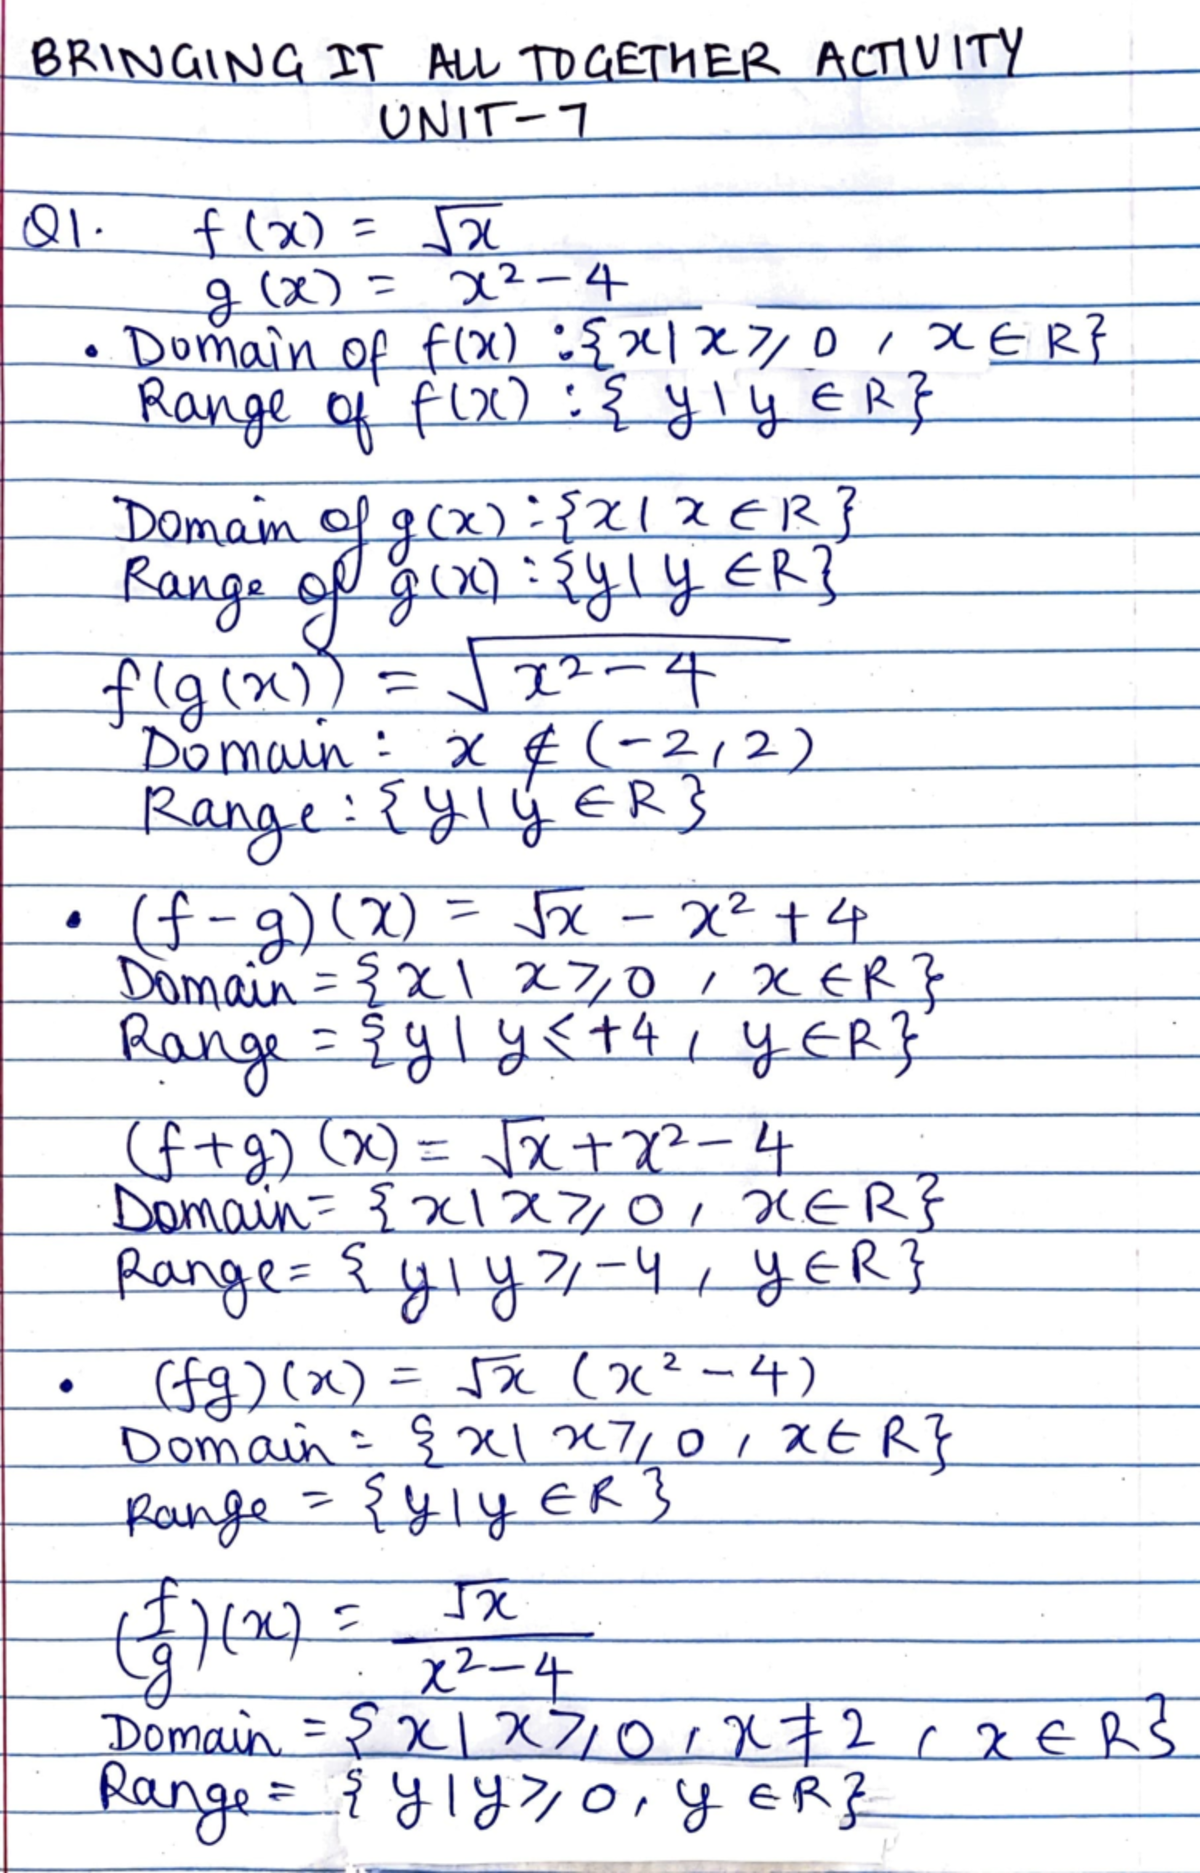 BRINGING IT ALL TOGETHER ACTIVITY
UNIT-7
Q1. f(x) = √x
g(x) = x² - 4
• Domain of f(x) : {x| x ≥ 0, x ∈ R}
Range of f(x) : { y | y ∈ R}
Domain of g(x) : {x | x ∈ R}
Range of g(x) : {y | y ∈ R}
f(g(x)) = √(x² - 4)
Domain : x ∉ (-2, 2)
Range : {y | y ∈ R}
• (f-g)(x) = √x - x² + 4
Domain = {x | x ≥ 0, x ∈ R}
Range = {y | y < +4, y ∈ R}
(f+g)(x) = √x + x² - 4
Domain = {x | x ≥ 0, x ∈ R}
Range = {y | y ≥ -4, y ∈ R}
• (fg)(x) = √x (x² - 4)
Domain = {x | x ≥ 0, x ∈ R}
Range = {y | y ∈ R}
(f/g)(x) = √x / (x² - 4)
Domain = {x | x ≥ 0, x ≠ 2, x ∈ R}
Range = {y | y ≥ 0, y ∈ R}